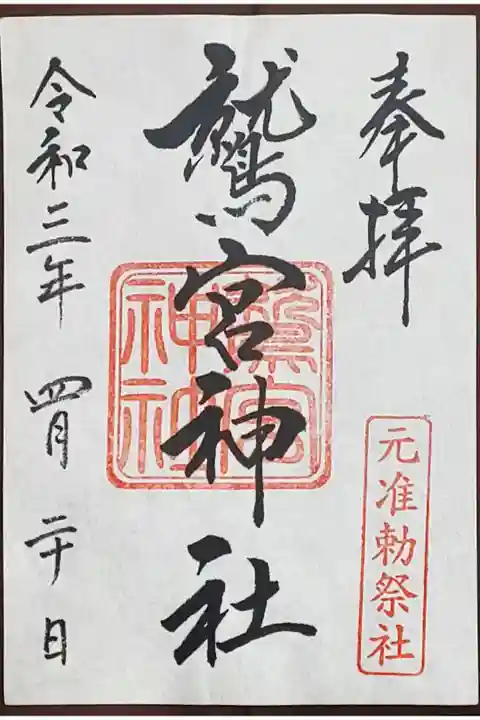 奉拝
元准勅祭社
鷲宮神社
鷲宮
神社
令和三年 四月 二十日